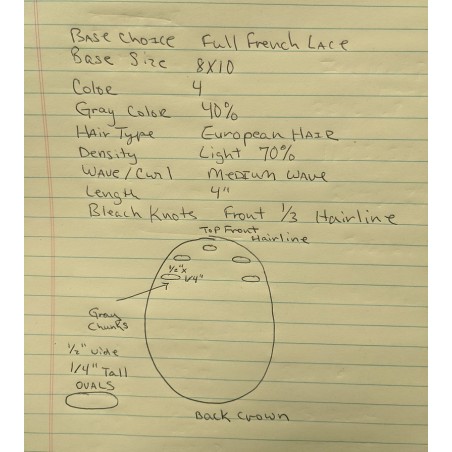 Base Choice Full French Lace
Base Size 8x10
Color 4
Gray Color 40%
Hair Type European Hair
Density Light 70%
Wave/Curl Medium Wave
Length 4"
Bleach Knots Front 1/3 Hairline
Top Front
Hairline
1/2" x
1/4"
Gray
Chunks
1/2" wide
1/4" Tall
OVALS
Back Crown